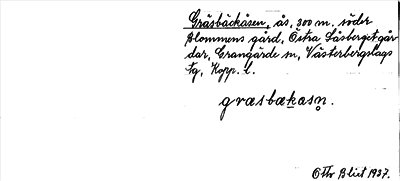 Gräsbäckåsen, ås, 300 m. söder
Blommens gård, Östra Låsberget går
dar, Grangärde sn, Västerbergslags
fg, Kopp. l.
græsbækasn̥.
Otto Blixt 1937.